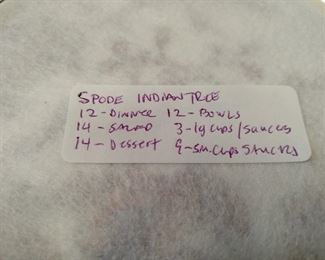 SPODE INDIAN TREE
12 - DINNER 12 - BOWLS
14 - SALAD 3 - lg cups / SAUCERS
14 - Dessert 9 - sm. cups SAUCERS